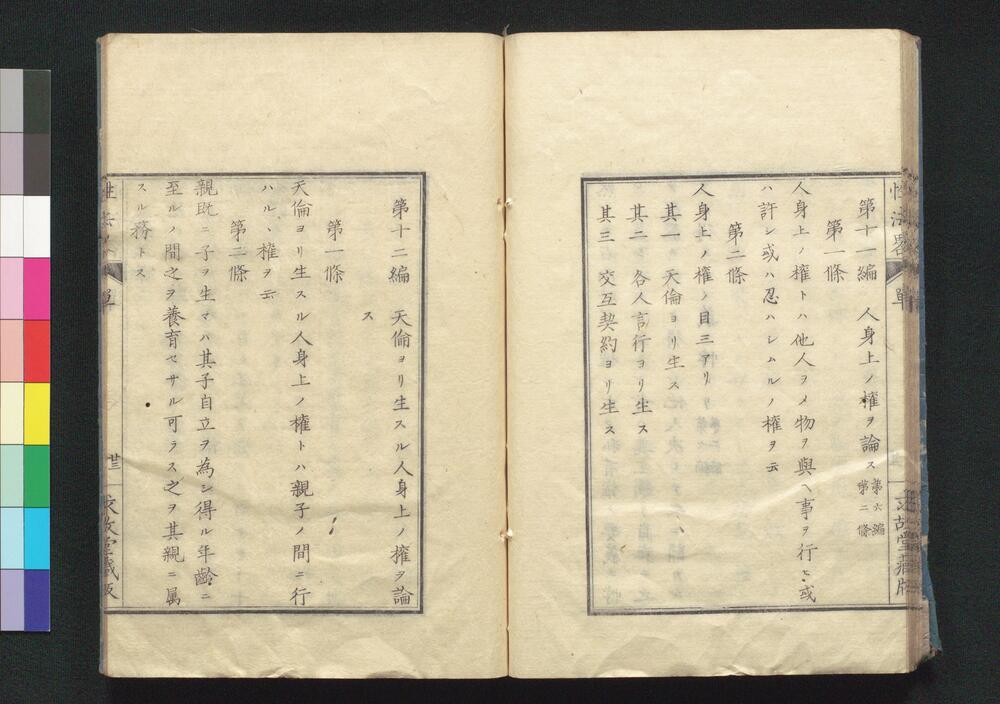 性法略 單
第十一編 人身上ノ權ヲ論ス 第六編第二條
第一條
人身上ノ權トハ他人ヲメ物ヲ與ヘ事ヲ行ヒ或
ハ許シ或ハ忍ハシムルノ權ヲ云
第二條
人身上ノ權ノ目三アリ
其一 天倫ヨリ生ス
其二 各人言行ヨリ生ス
其三 交互契約ヨリ生ス
第十二編 天倫ヨリ生スル人身上ノ權ヲ論
ス
第一條
天倫ヨリ生スル人身上ノ權トハ親子ノ間ニ行
ハルヽ權ヲ云
第二條
親既ニ子ヲ生マハ其子自立ヲ為シ得ル年齡ニ
至ルノ間之ヲ養育セサル可ラス之ヲ其親ニ属
スル務トス
單 廿三